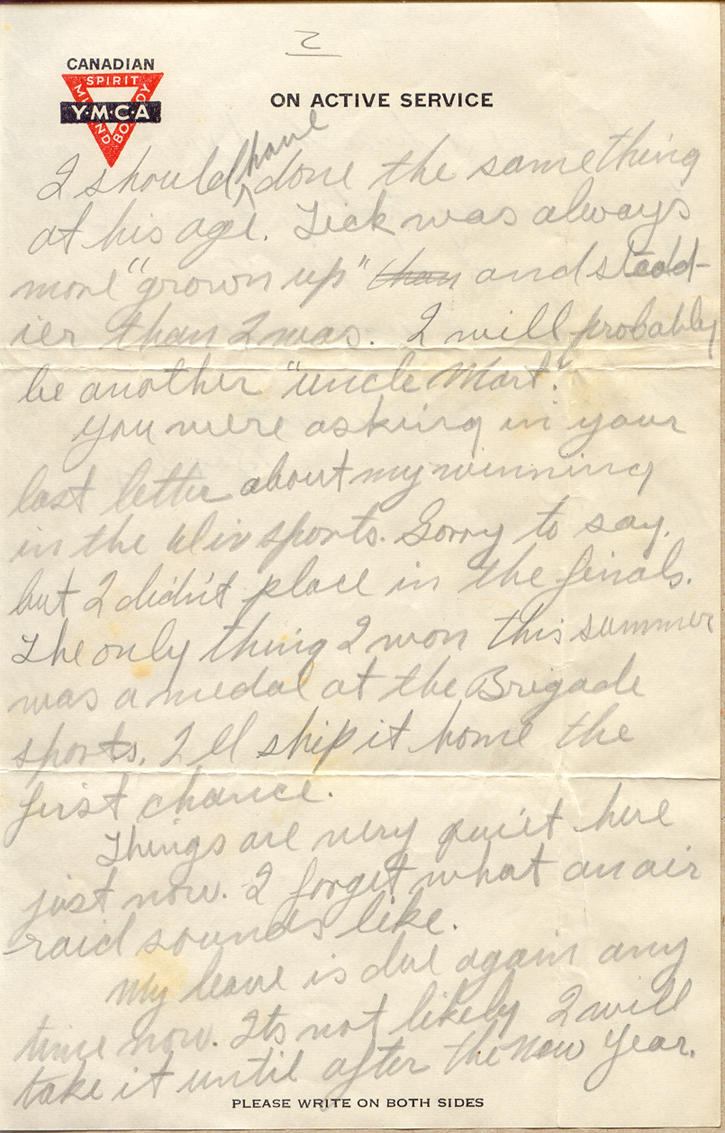 2
CANADIAN
SPIRIT
MIND
BODY
Y·M·C·A
ON ACTIVE SERVICE
have
I should done the same thing
at his age. Dick was always
more "grown up" than and stedd-
ier than I was. I will probably
be another "uncle Mart."
You were asking in your
last letter about my winning
in the Div sports. Sorry to say,
but I didn't place in the finals.
The only thing I won this summer
was a medal at the Brigade
sports. I ll ship it home the
first chance.
Things are very quiet here
just now. I forget what an air
raid sounds like.
My leave is due again any
time now. Its not likely I will
take it until after the New Year.
PLEASE WRITE ON BOTH SIDES